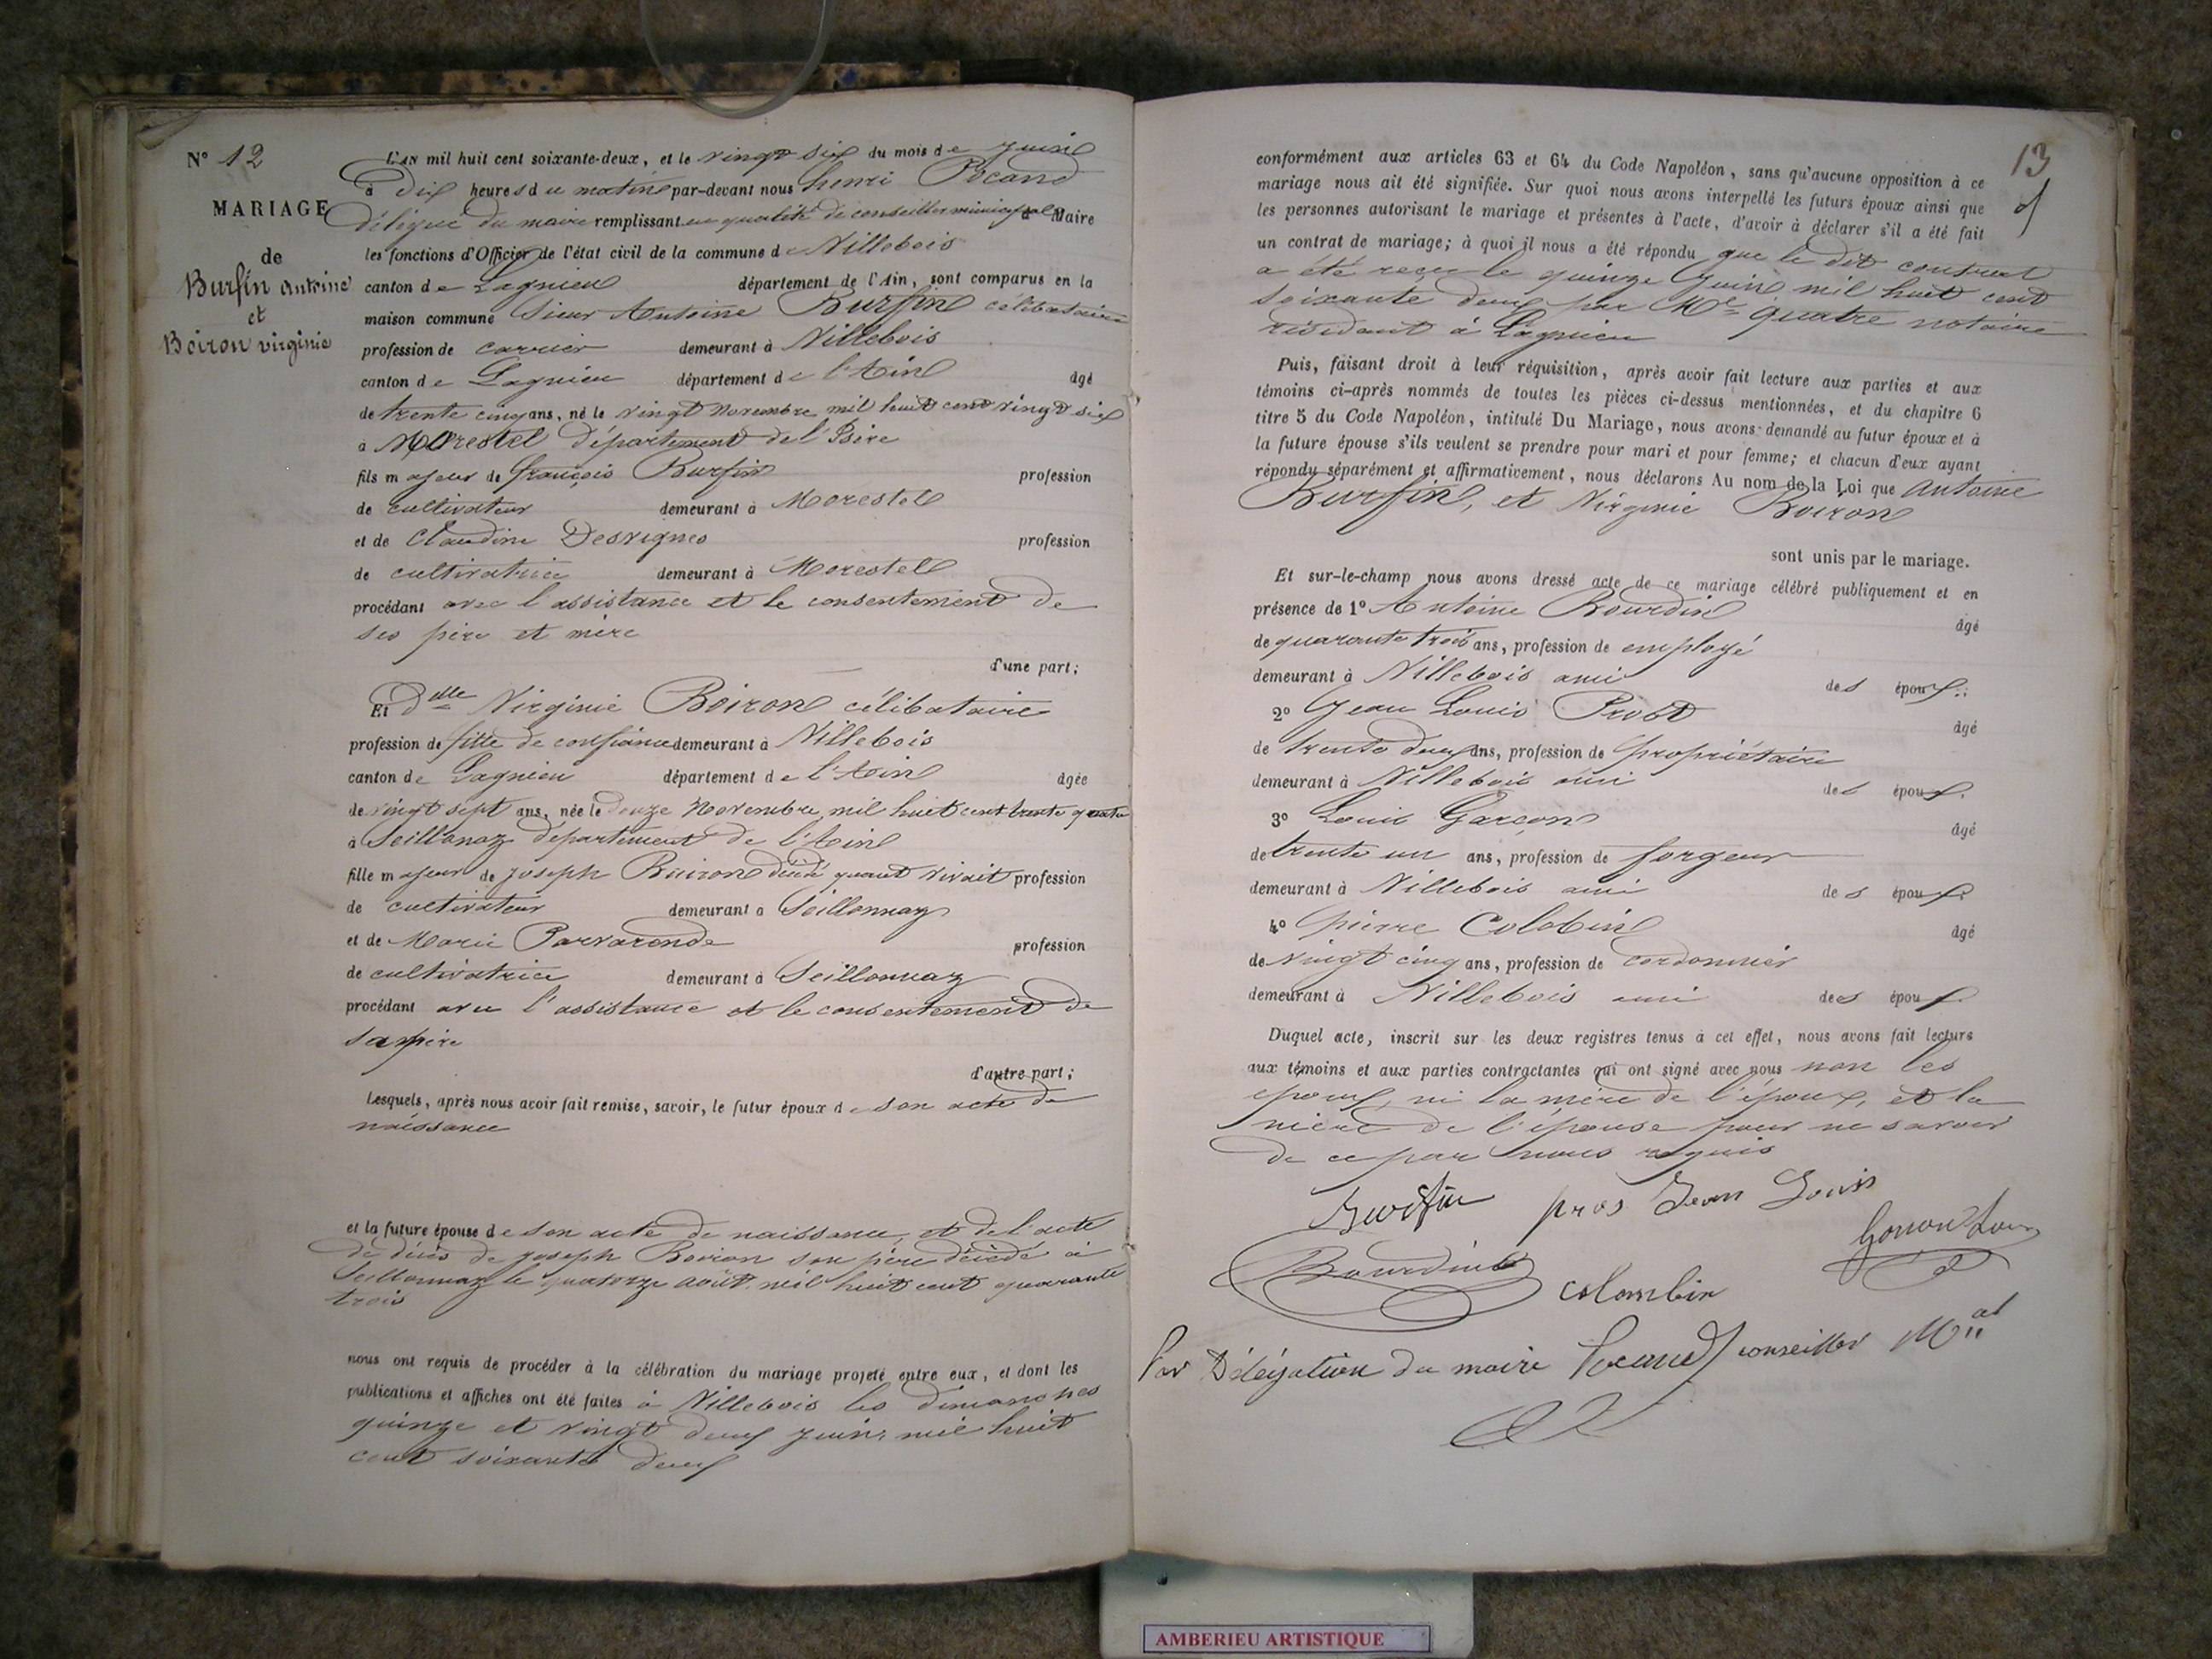 N° 12
MARIAGE
de
Burfin antoine
et
Boiron virginie
L'AN mil huit cent soixante-deux, et le vingt six du mois de juin
à dix heures du matin par-devant nous henri Pocand
délégué du maire remplissant en qualité de conseiller municipal Maire
les fonctions d'Officier de l'état civil de la commune de Villebois
canton de Lagnieu département de l'Ain, sont comparus en la
maison commune Sieur Antoine Burfin célibataire
profession de carrier demeurant à Villebois
canton de Lagnieu département de l'Ain âgé
de trente cinq ans, né le vingt novembre mil huit cent vingt six
à Morestel département de l'Isère
fils majeur de François Burfin profession
de cultivateur demeurant à Morestel
et de Claudine Desvignes profession
de cultivatrice demeurant à Morestel
procédant avec l'assistance et le consentement de
ses père et mère
d'une part;
Et Dlle Virginie Boiron célibataire
profession de fille de confiance demeurant à Villebois
canton de Lagnieu département de l'Ain âgée
de vingt sept ans, née le douze Novembre mil huit cent trente quatre
à Seillonaz département de l'Ain
fille majeur de Joseph Boiron décédé quant vivait profession
de cultivateur demeurant à Seillonnaz
et de Marie Parvarende profession
de cultivatrice demeurant à Seillonnaz
procédant avec l'assistance et le consentement de
sa mère
d'autre part;
Lesquels, après nous avoir fait remise, savoir, le futur époux de son acte de
naissance
et la future épouse de son acte de naissance, et de l'acte
de décès de Joseph Boiron son père décédé à
Seillonnaz le quatorze août mil huit cent quarante
trois
nous ont requis de procéder à la célébration du mariage projeté entre eux, et dont les
publications et affiches ont été faites à Villebois les dimanches
quinze et vingt deux juin mil huit
cent soixante deux
13
conformément aux articles 63 et 64 du Code Napoléon, sans qu'aucune opposition à ce
mariage nous ait été signifiée. Sur quoi nous avons interpellé les futurs époux ainsi que
les personnes autorisant le mariage et présentes à l'acte, d'avoir à déclarer s'il a été fait
un contrat de mariage; à quoi il nous a été répondu que le dit contrat
a été reçu le quinze juin mil huit cent
soixante deux par Me Quatre notaire
résidant à Lagnieu
Puis, faisant droit à leur réquisition, après avoir fait lecture aux parties et aux
témoins ci-après nommés de toutes les pièces ci-dessus mentionnées, et du chapitre 6
titre 5 du Code Napoléon, intitulé Du Mariage, nous avons demandé au futur époux et à
la future épouse s'ils veulent se prendre pour mari et pour femme; et chacun d'eux ayant
répondu séparément et affirmativement, nous déclarons Au nom de la Loi que Antoine
Burfin, et Virginie Boiron
sont unis par le mariage.
Et sur-le-champ nous avons dressé acte de ce mariage célébré publiquement et en
présence de 1° Antoine Bourdin âgé
de quarante trois ans, profession de employé
demeurant à Villebois ami des époux;
2° Jean Louis Prost âgé
de trente deux ans, profession de propriétaire
demeurant à Villebois ami des époux.
3° Louis Garçon âgé
de trente un ans, profession de forgeur
demeurant à Villebois ami des époux
4° pierre Colobin âgé
de vingt cinq ans, profession de cordonnier
demeurant à Villebois ami des époux
Duquel acte, inscrit sur les deux registres tenus à cet effet, nous avons fait lecture
aux témoins et aux parties contractantes qui ont signé avec nous non les
epoux, ni la mère de l'époux, et la
mère de l'épouse pour ne savoir
de ce par nous requis
Burfin pros Jean Louis
Bourdin
colombin
Par Délégation du maire Pocand conseiller Mal
AMBERIEU ARTISTIQUE